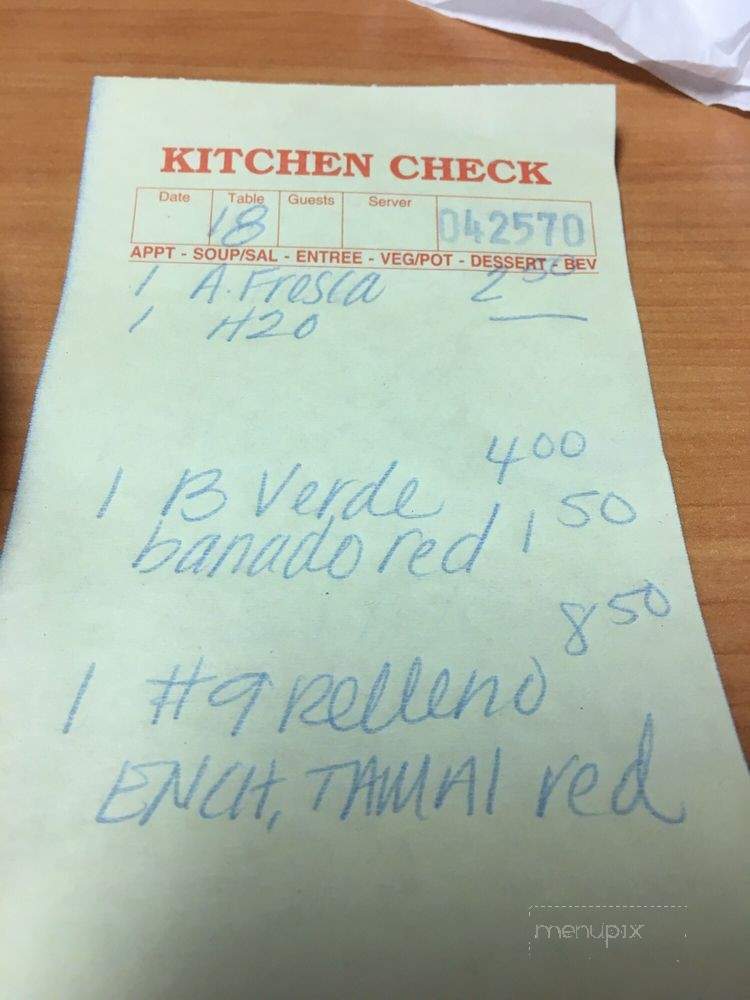 KITCHEN CHECK
Date Table Guests Server
18 042570
APPT - SOUP/SAL - ENTREE - VEG/POT - DESSERT - BEV
1 A. Fresca 2 50
1 H20
4 00
1 B Verde
banado red 1 50
8 50
1 #9 Relleno
ENCH, TAMAl red
menupix